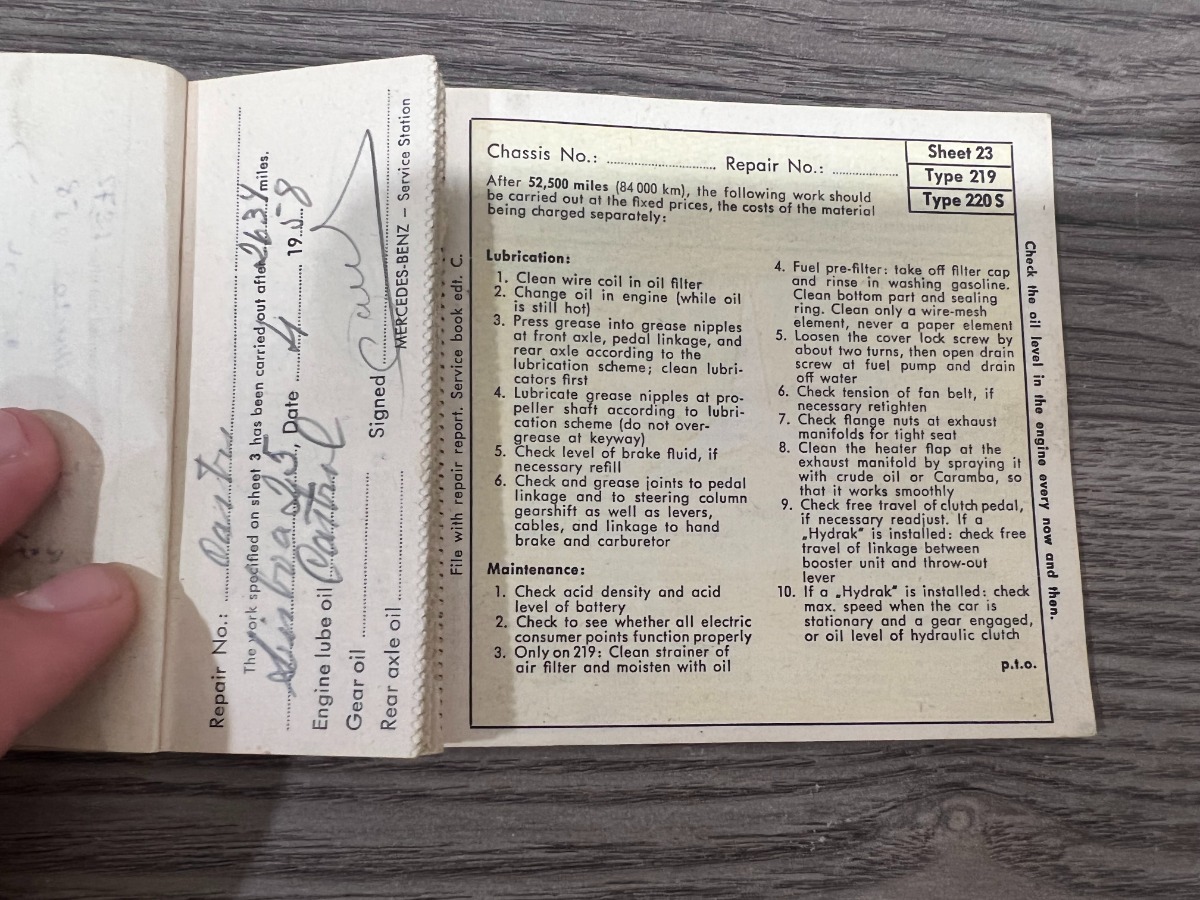 Repair No.:
The work specified on sheet 3 has been carried out after 2634 miles.
Date 4 1958
Engine lube oil
Gear oil
Rear axle oil
Signed
MERCEDES-BENZ – Service Station
File with repair report. Service book edt. C.
Chassis No.: Repair No.:
Sheet 23
Type 219
Type 220 S
After 52,500 miles (84 000 km), the following work should
be carried out at the fixed prices, the costs of the material
being charged separately:
Lubrication:
1. Clean wire coil in oil filter
2. Change oil in engine (while oil
is still hot)
3. Press grease into grease nipples
at front axle, pedal linkage, and
rear axle according to the
lubrication scheme; clean lubri-
cators first
4. Lubricate grease nipples at pro-
peller shaft according to lubri-
cation scheme (do not over-
grease at keyway)
5. Check level of brake fluid, if
necessary refill
6. Check and grease joints to pedal
linkage and to steering column
gearshift as well as levers,
cables, and linkage to hand
brake and carburetor
Maintenance:
1. Check acid density and acid
level of battery
2. Check to see whether all electric
consumer points function properly
3. Only on 219: Clean strainer of
air filter and moisten with oil
4. Fuel pre-filter: take off filter cap
and rinse in washing gasoline.
Clean bottom part and sealing
ring. Clean only a wire-mesh
element, never a paper element
5. Loosen the cover lock screw by
about two turns, then open drain
screw at fuel pump and drain
off water
6. Check tension of fan belt, if
necessary retighten
7. Check flange nuts at exhaust
manifolds for tight seat
8. Clean the heater flap at the
exhaust manifold by spraying it
with crude oil or Caramba, so
that it works smoothly
9. Check free travel of clutch pedal,
if necessary readjust. If a
„Hydrak" is installed: check free
travel of linkage between
booster unit and throw-out
lever
10. If a „Hydrak" is installed: check
max. speed when the car is
stationary and a gear engaged,
or oil level of hydraulic clutch
p.t.o.
Check the oil level in the engine every now and then.